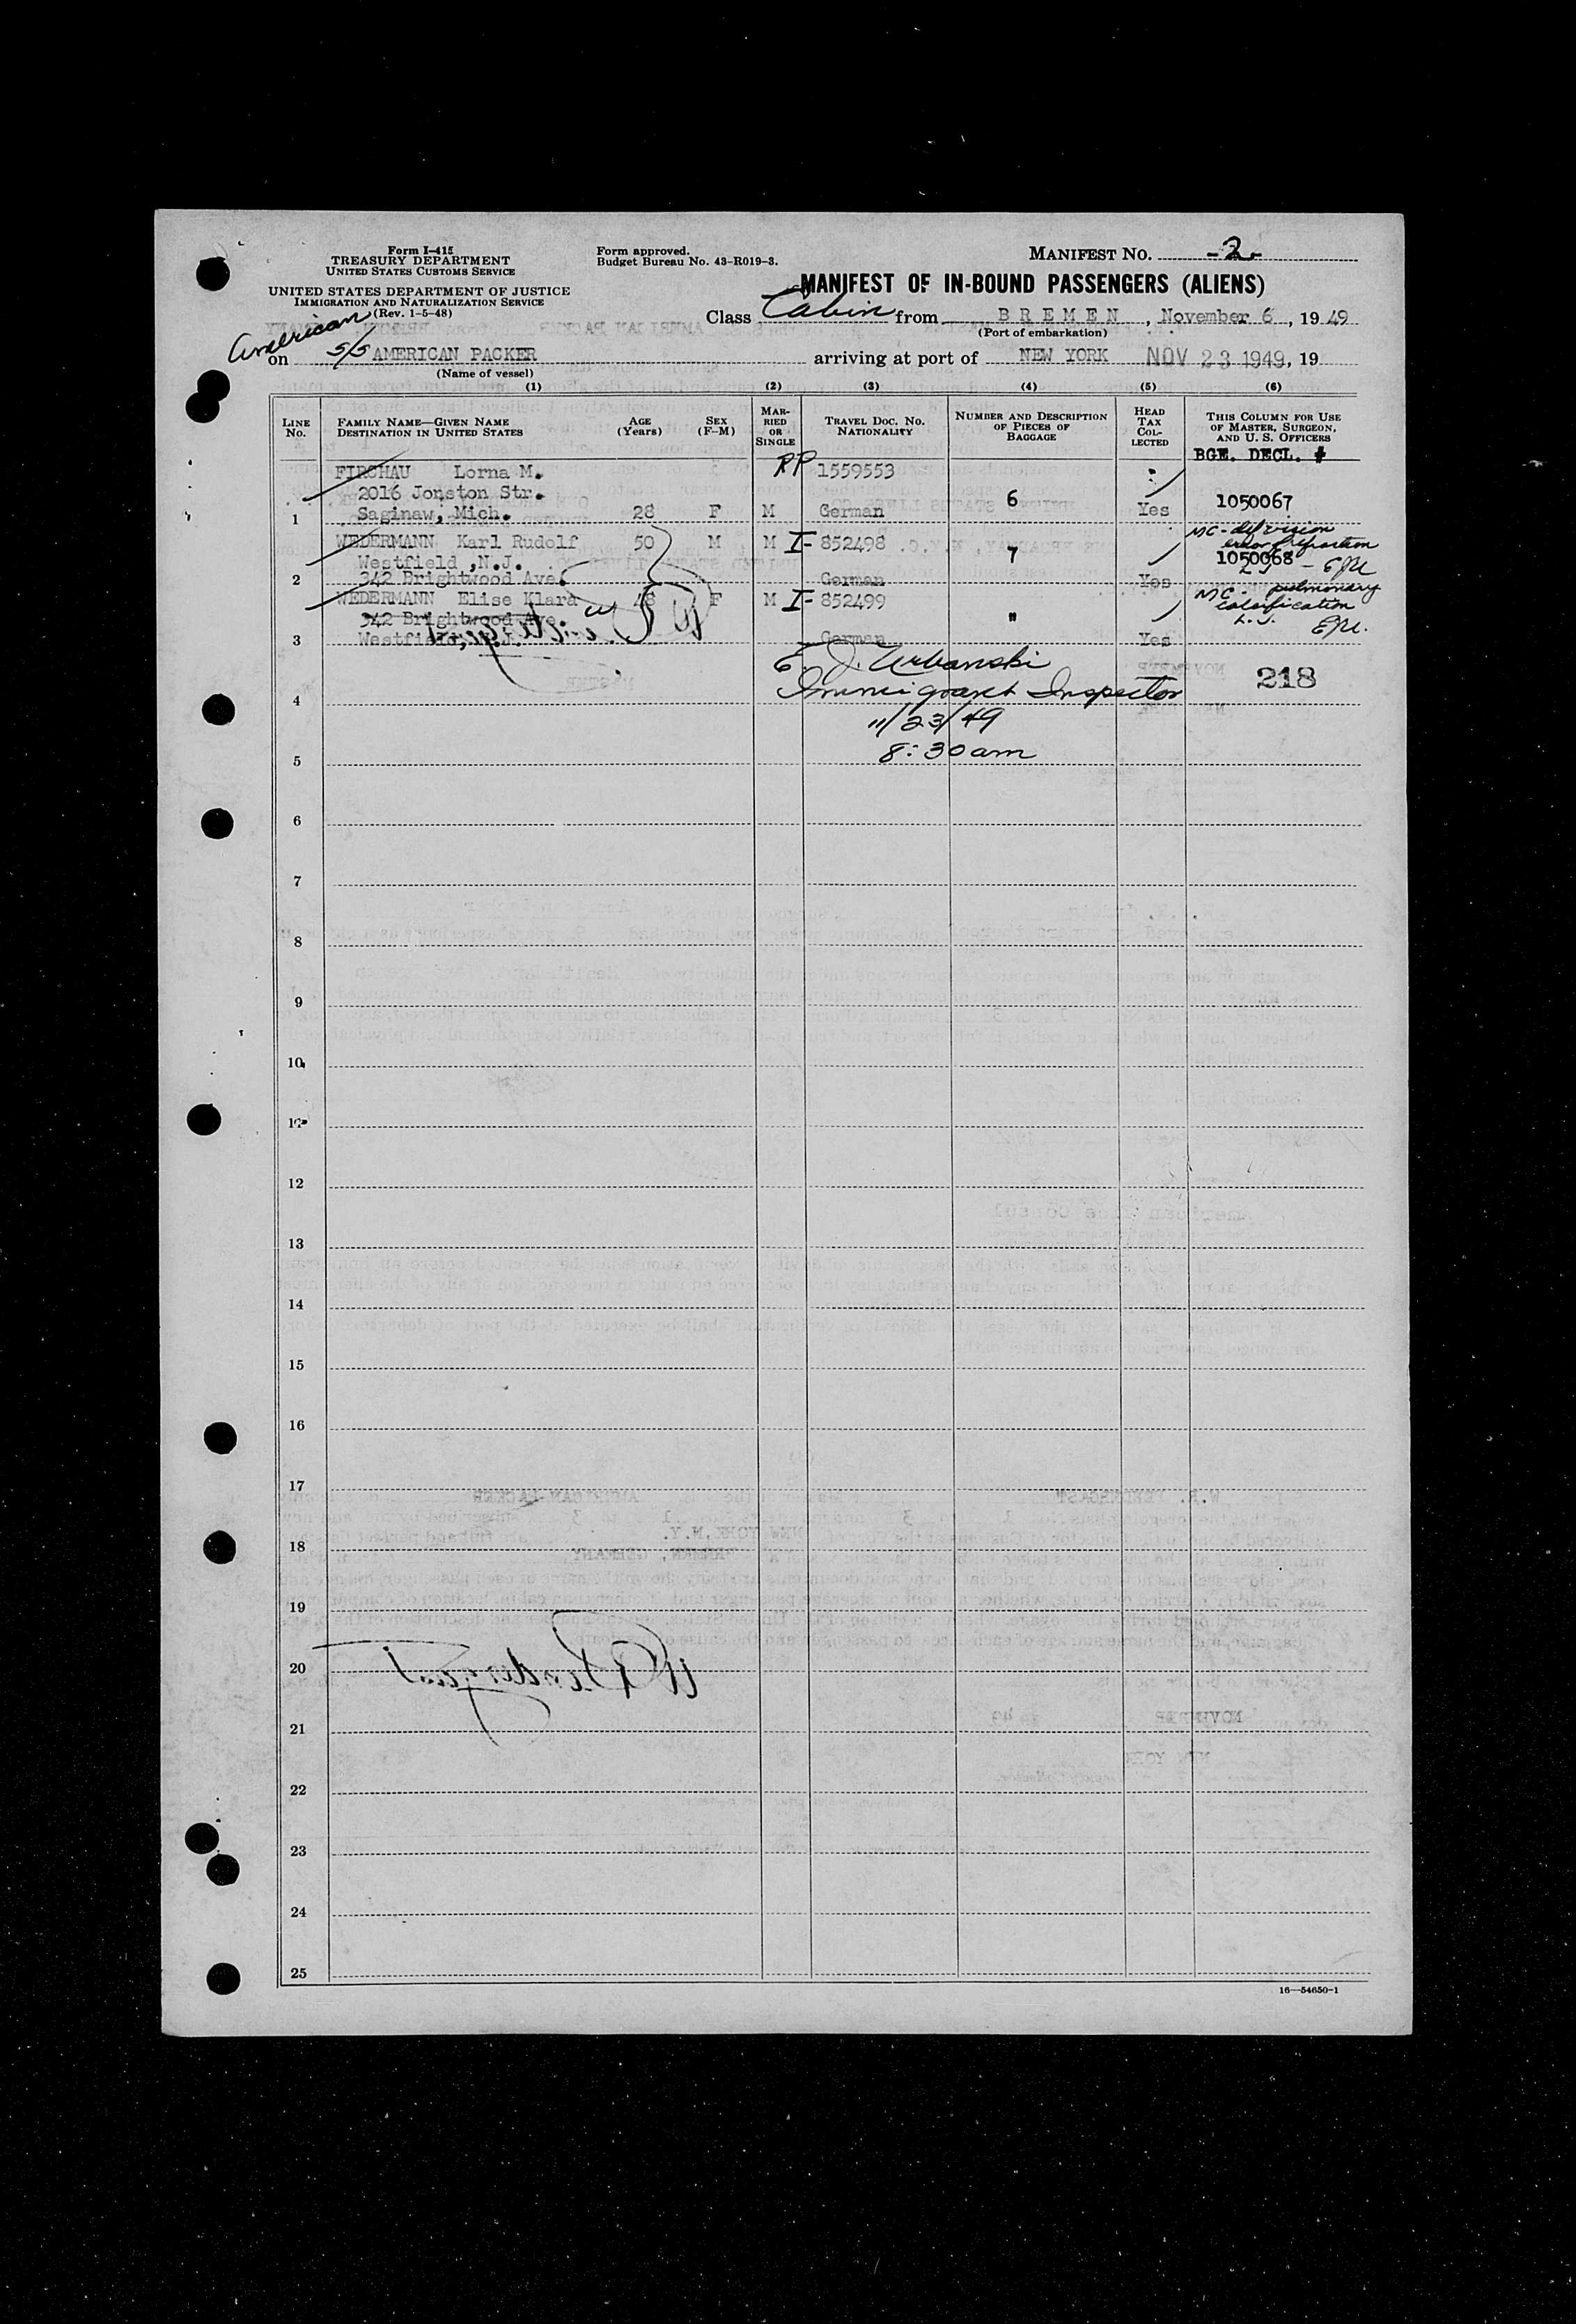 Form I-415
TREASURY DEPARTMENT
UNITED STATES CUSTOMS SERVICE
UNITED STATES DEPARTMENT OF JUSTICE
IMMIGRATION AND NATURALIZATION SERVICE
(Rev. 1-5-48)
Form approved.
Budget Bureau No. 43-R019-3.
MANIFEST NO. -2-
MANIFEST OF IN-BOUND PASSENGERS (ALIENS)
Class Cabin from BREMEN, November 6, 1949
(Port of embarkation)
American
on S/S AMERICAN PACKER arriving at port of NEW YORK NOV 23 1949, 19
(Name of vessel)
(1) (2) (3) (4) (5) (6)
LINE No. FAMILY NAME—GIVEN NAME DESTINATION IN UNITED STATES AGE (Years) SEX (F-M) MARRIED OR SINGLE TRAVEL DOC. NO. NATIONALITY NUMBER AND DESCRIPTION OF PIECES OF BAGGAGE HEAD TAX COLLECTED THIS COLUMN FOR USE OF MASTER, SURGEON, AND U. S. OFFICERS
BGE. DECL. #
FIRSHAU Lorna M. RP 1559553
2016 Jonston Str.
1 Saginaw, Mich. 28 F M German 6 Yes 1050067
WEDERMANN Karl Rudolf 50 M M I- 852498 MC - def vision
Westfield ,N.J. 7 1050068
2 342 Brightwood Ave. German Yes
WEDERMANN Elise Klara 48 F M I- 852499 MC - pulmonary
342 Brightwood Ave. " calcification
3 Westfield, N.J. German Yes
E. J. Urbanski
Immigrant Inspector 218
4
11/23/49
8:30 am
5
6
7
8
9
10
11
12
13
14
15
16
17
18
19
20
21
22
23
24
25
16—54650-1